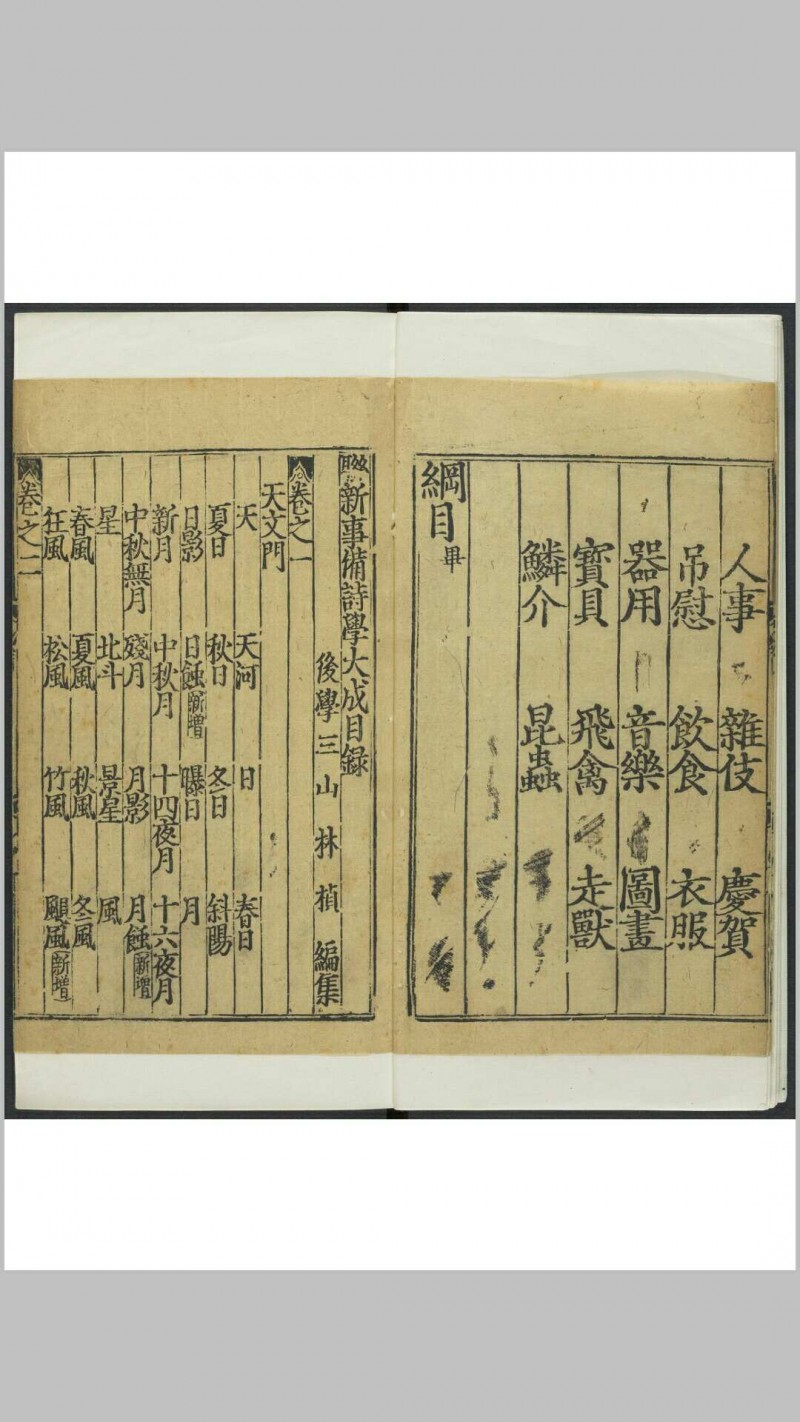 人事 雜伎 慶賀
吊慰 飲食 衣服
器用 音樂 圖畫
寳貝 飛禽 走獸
鱗介 昆蟲
綱目畢
聯新事備詩學大成目録
後學三山林楨編集
卷之一
天文門
天 天河 日 春日
夏日 秋日 冬日 斜陽
日影 日蝕新增 曝日 月
新月 中秋月 十四夜月 十六夜月
中秋無月 殘月 月影 月蝕新增
星 北斗 景星 風
春風 夏風 秋風 冬風
狂風 松風 竹風 颶風新增
卷之二